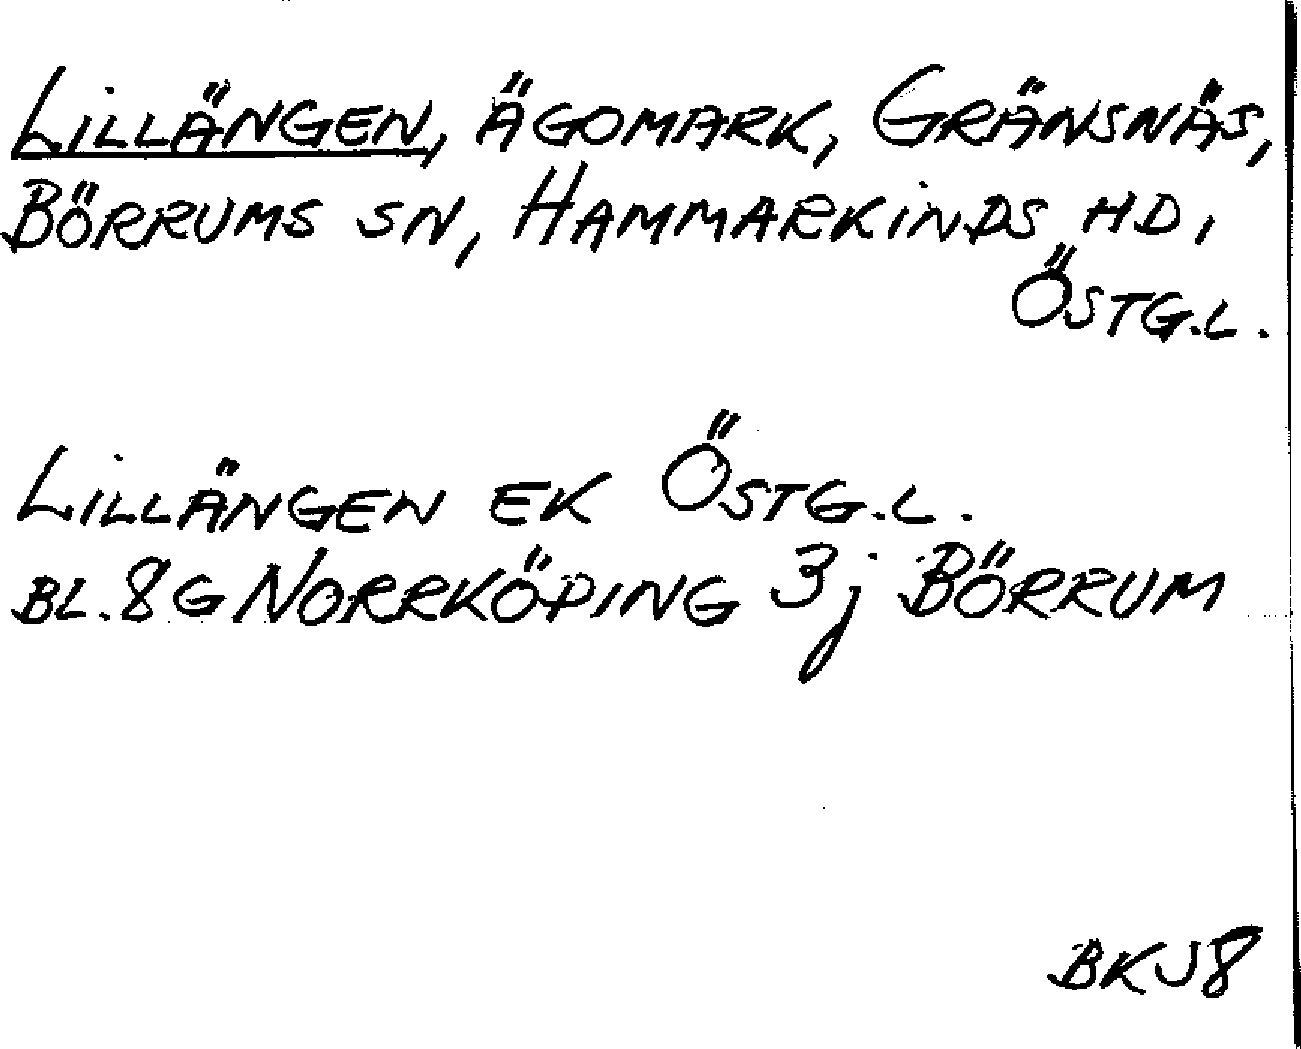 LILLÄNGEN, ÄGOMARK, GRÄNSNÄS,
BÖRRUMS SN, HAMMARKINDS HD,
ÖSTG.L.
LILLÄNGEN EK ÖSTG.L.
BL. 8G NORRKÖPING 3j BÖRRUM
BKJ8